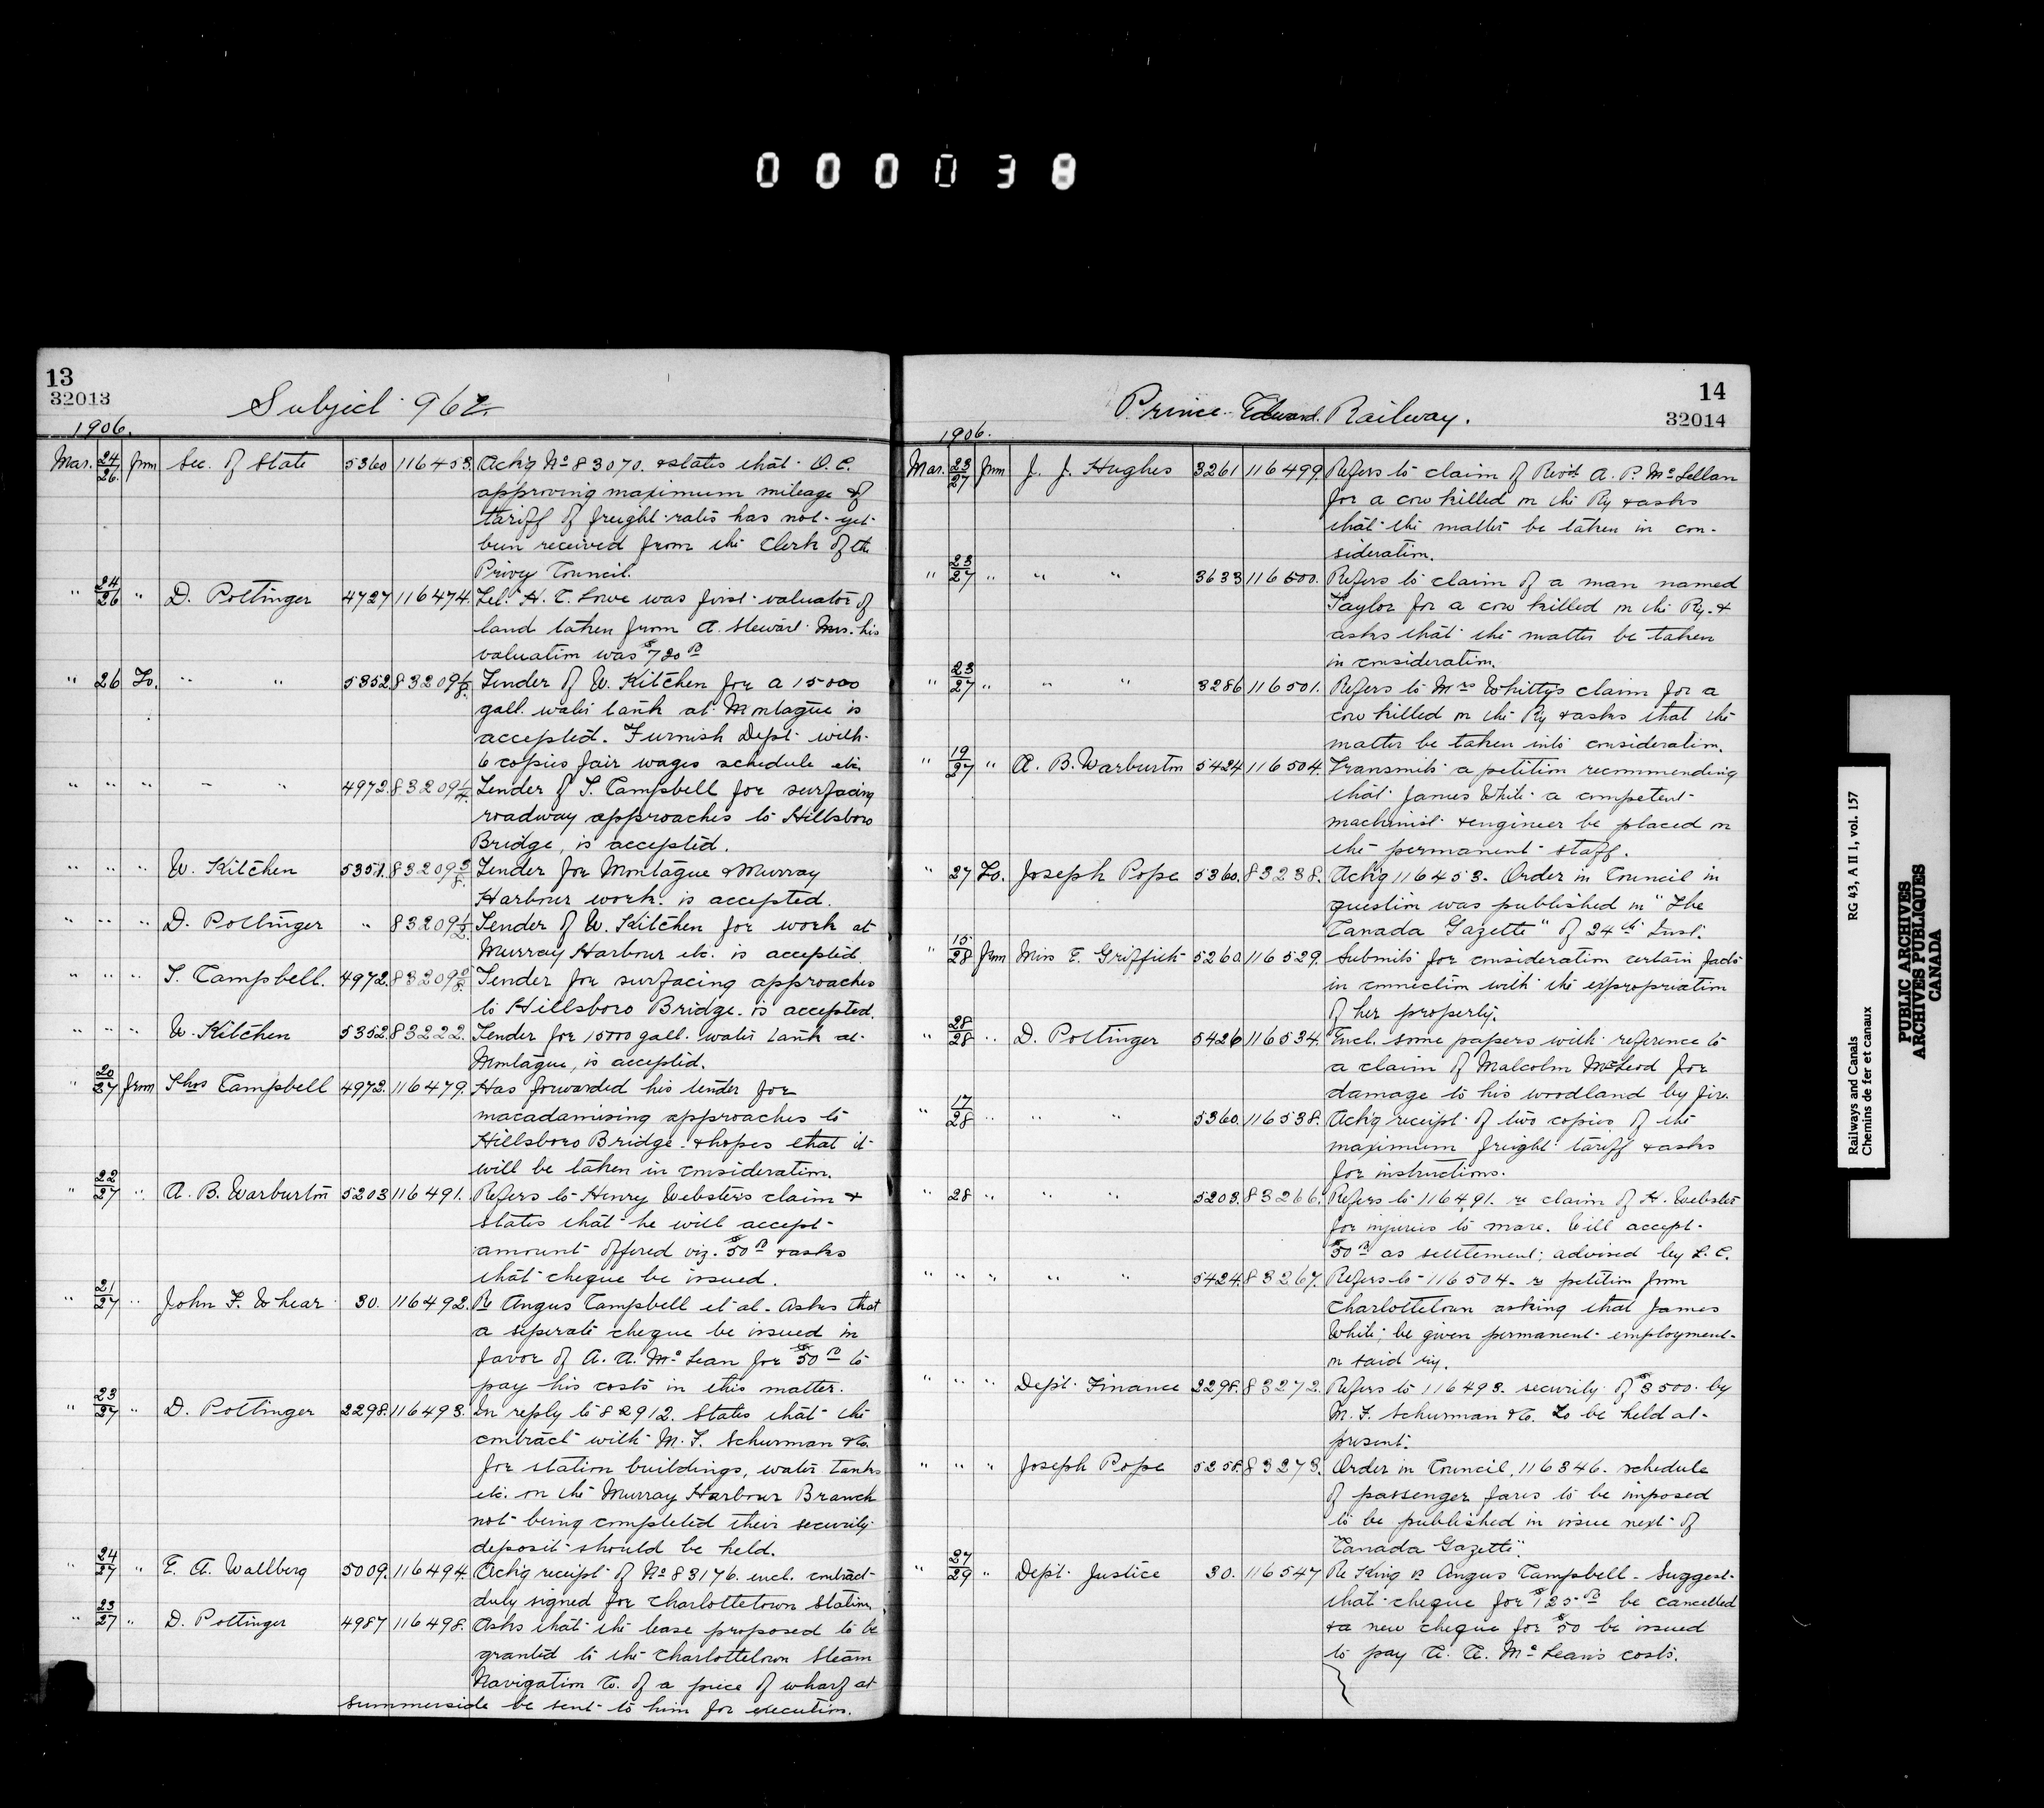 000038
13
32013
Subject 962
1906.
Mar. 24/26 frm Sec. of State 5360 116453. Ackg No 83070. & states that O.C.
approving maximum mileage &
tariff of freight rates has not yet
been received from the Clerk of the
Privy Council.
" 24/26 " D. Pottinger 4727 116474. Tel. H. C. Lowe was first valuator of
land taken from A. Stewart Mrs. his
valuation was $720.00
" 26 To. " " 5352 83209 Tender of W. Kitchen for a 15000
gall. water tank at Montague is
accepted. Furnish Dept. with
6 copies fair wages schedule etc.
" " " " " 4972. 83209 Tender of T. Campbell for surfacing
roadway approaches to Hillsboro
Bridge, is accepted.
" " " W. Kitchen 5351. 83209 Tender for Montague & Murray
Harbour work. is accepted.
" " " D. Pottinger " 83209 Tender of W. Kitchen for work at
Murray Harbour etc. is accepted.
" " " T. Campbell. 4972. 83209 Tender for surfacing approaches
to Hillsboro Bridge. is accepted.
" " " W. Kitchen 5352 83222. Tender for 15000 gall. water tank at
Montague, is accepted.
" 20/27 from Thos Campbell 4972. 116479. Has forwarded his tender for
macadamising approaches to
Hillsboro Bridge & hopes that it
will be taken in consideration.
" 22/27 " A. B. Warburton 5203 116491. Refers to Henry Webster's claim &
states that he will accept
amount offered viz. $50.00 & asks
that cheque be issued.
" 21/27 " John F. Whear 30. 116492. Re Angus Campbell et al. Asks that
a seperate cheque be issued in
favor of A. A. McLean for $50.00 to
pay his costs in this matter.
" 23/27 " D. Pottinger 2298. 116493. In reply to 82912. States that the
contract with M. F. Schurman & Co.
for station buildings, water tanks
etc. on the Murray Harbour Branch
not being completed their security
deposit should be held.
" 24/27 " E. A. Wallberg 5009. 116494. Ackg receipt of No 83176. encl. contract
duly signed for Charlottetown Station.
" 23/27 " D. Pottinger 4987 116498. Asks that the lease proposed to be
granted to the Charlottetown Steam
Navigation Co. of a piece of wharf at
Summerside be sent to him for execution.
14
32014
Prince Edward Railway.
1906.
Mar. 23/27 frm J. J. Hughes 3261 116499. Refers to claim of Rev'd A. P. McLellan
for a cow killed on the Ry & asks
that the matter be taken in con-
sideration.
" 23/27 " " " 3633 116500. Refers to claim of a man named
Taylor for a cow killed on the Ry. &
asks that the matter be taken
in consideration.
" 23/27 " " " 3286 116501. Refers to Mrs Whitty's claim for a
cow killed on the Ry & asks that the
matter be taken into consideration.
" 19/27 " A. B. Warburton 5424 116504. Transmits a petition recommending
that James White a competent
machinist & engineer be placed on
the permanent staff.
" 27 To. Joseph Pope 5360. 83238. Ackg 116453. Order in Council in
question was published in "The
Canada Gazette" of 24th Inst.
" 15/28 frm Miss E. Griffith 5260. 116529. Submits for consideration certain facts
in connection with the expropriation
of her property.
" 28/28 " D. Pottinger 5426 116534. Encl. some papers with reference to
a claim of Malcolm McLeod for
damage to his woodland by fire.
" 17/28 " " " 5360. 116538. Ackg receipt of two copies of the
maximum freight tariff & asks
for instructions.
" 28 " " " 5203. 83266. Refers to 116491. re claim of H. Webster
for injuries to mare. Will accept
$50.00 as settlement; advised by L. C.
" " " " " 5424. 83267. Refers to 116504. re petition from
Charlottetown asking that James
White; be given permanent employment
on said ry.
" " " Dept. Finance 2298. 83272. Refers to 116493. security of $3500. by
M. F. Schurman & Co. To be held at
present.
" " " Joseph Pope 5258. 83273. Order in Council, 116346. schedule
of passenger fares to be imposed
to be published in issue next of
"Canada Gazette".
" 27/29 " Dept. Justice 30. 116547 Re King vs Angus Campbell. Suggest
that cheque for $125.00 be cancelled
& a new cheque for $50 be issued
to pay A. A. McLean's costs.
Railways and Canals RG 43, A II 1, vol. 157
Chemins de fer et canaux
PUBLIC ARCHIVES
ARCHIVES PUBLIQUES
CANADA